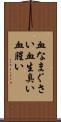 血なまぐさ
い血生臭い
血腥い